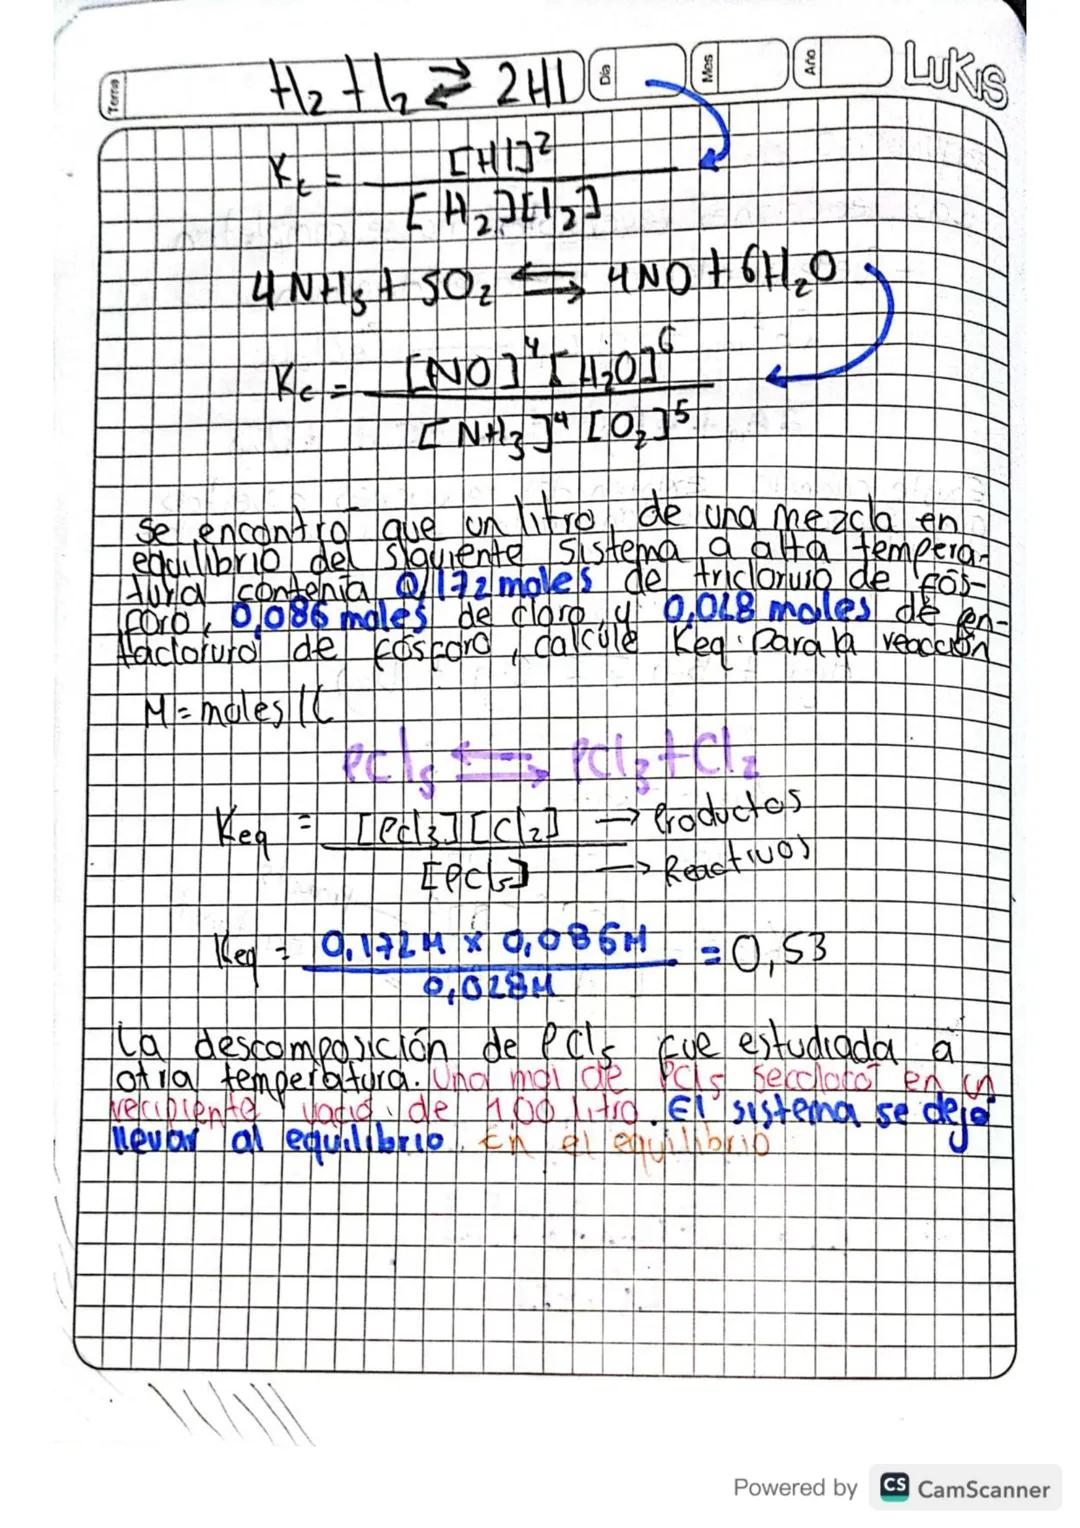 Tema
H₂ + I₂ ⇄ 2HI
Día
Mes
Año
LUKIS
Kc = [HI]² / [H₂][I₂]
4NH₃ + 5O₂ ⇌ 4NO + 6H₂O
Kc = [NO]⁴ [H₂O]⁶ / [NH₃]⁴ [O₂]⁵
Se encontró que un litro, de una mezcla en
equilibrio del siguiente sistema a alta tempera-
tura contenía 0,172 moles de tricloruro de fós-
foro, 0,086 moles de cloro, y 0,028 moles de
fósforo, calcule Keq. Para la reacción
M = moles / L
PCl₅ ⇌ PCl₃ + Cl₂
Keq = [PCl₃][Cl₂] → Productos
[PCl₅] → Reactivos
Keq = 0,172M x 0,086M / 0,028M = 0,53
La descomposición de PCl₅ fue estudiada a
otra temperatura. Una mol de PCl₅ se colocó en un
recipiente vacío de 1,00 litro. El sistema se dejó
llevar al equilibrio. En el equilibrio
Powered by CS CamScanner